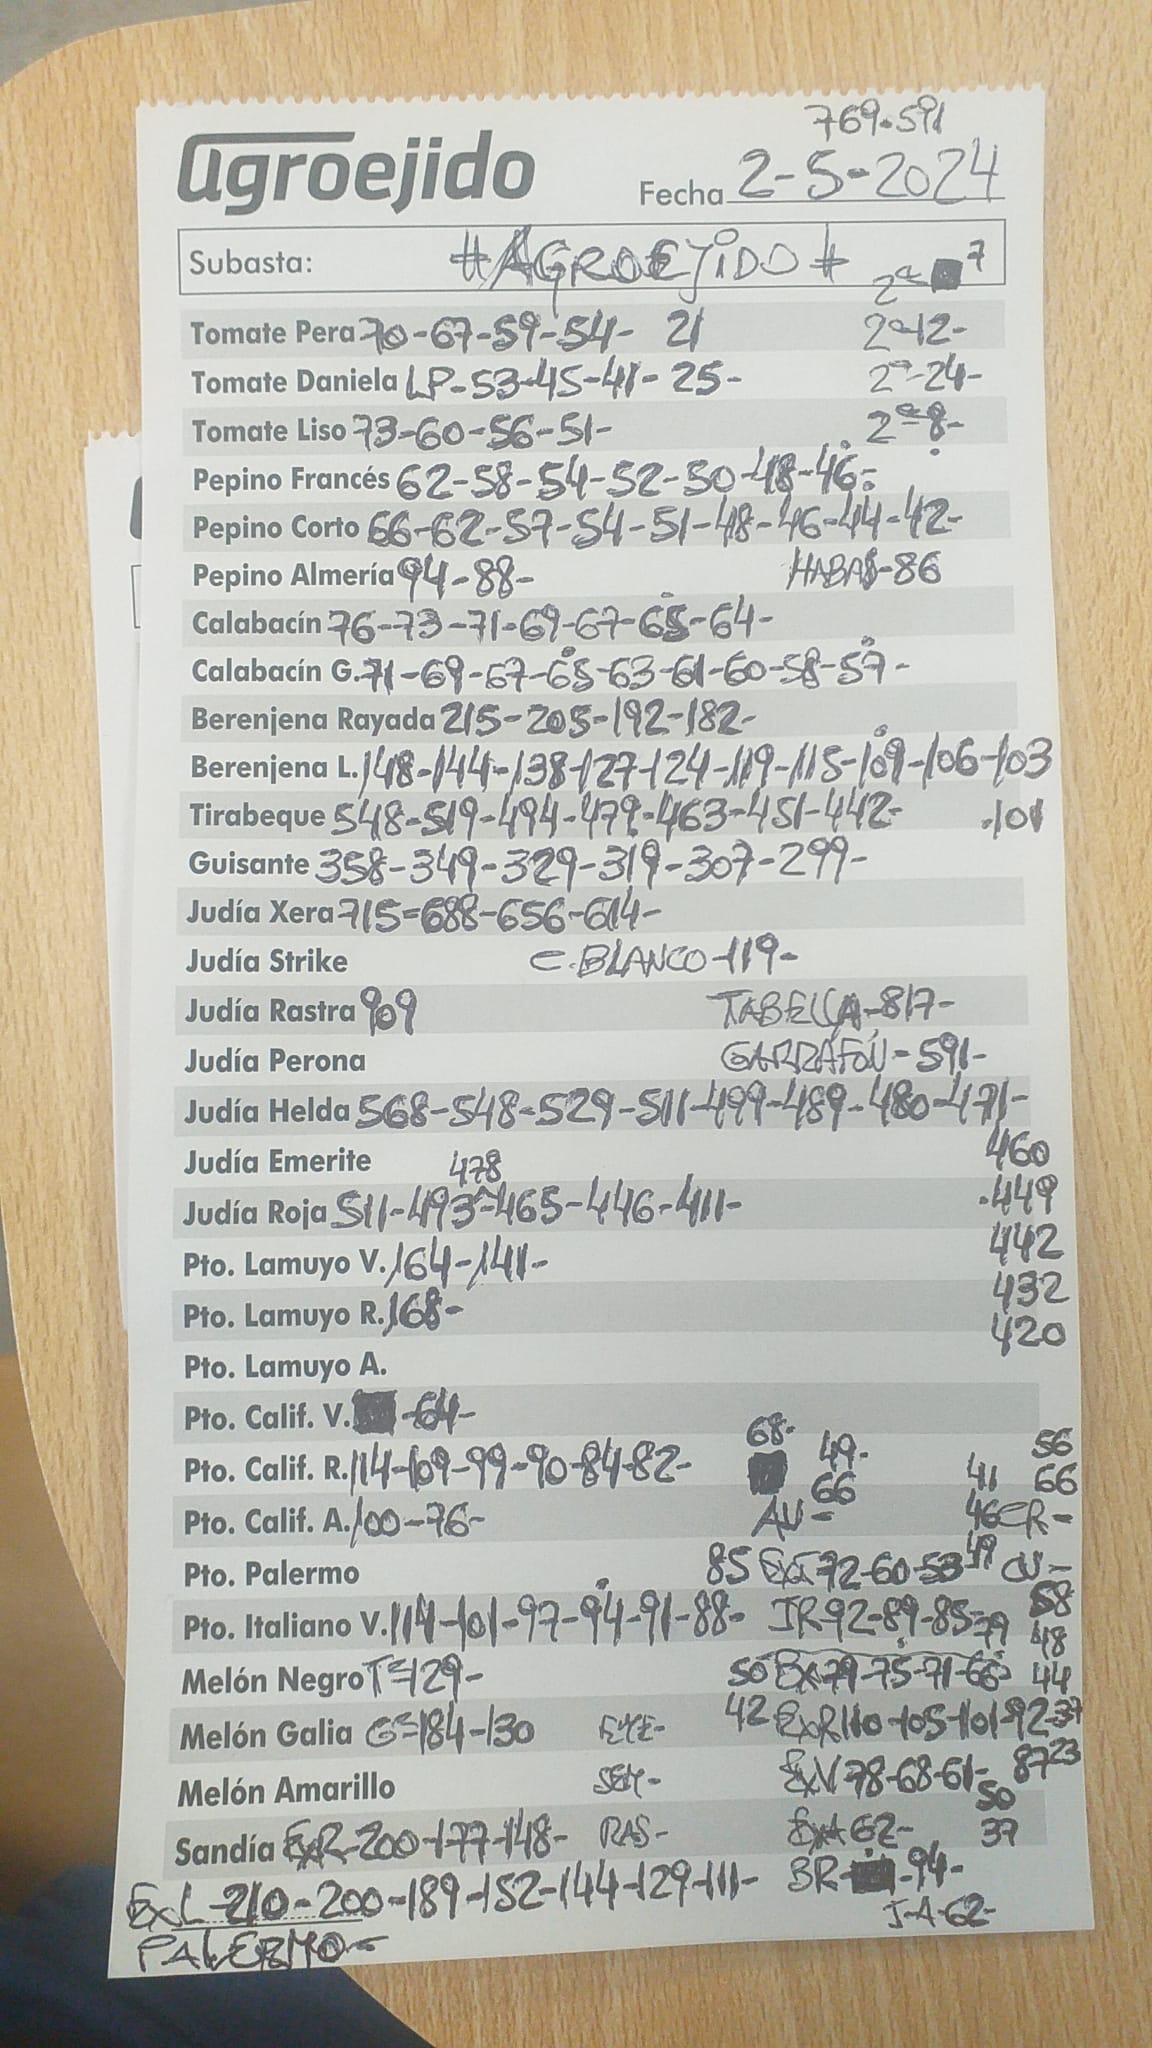 769-591
agroejido
Fecha 2-5-2024
Subasta: #AGROEJIDO#
2ª 7
Tomate Pera 70-67-59-54- 21 2ª-12-
Tomate Daniela LP-53-45-41- 25- 2ª-24-
Tomate Liso 73-60-56-51- 2ª-8-
Pepino Francés 62-58-54-52-50-48-46-
Pepino Corto 66-62-57-54-51-48-46-44-42-
Pepino Almería 94-88- HABAS-86
Calabacín 76-73-71-69-67-65-64-
Calabacín G. 71-69-67-65-63-61-60-58-57-
Berenjena Rayada 215-205-192-182-
Berenjena L. 148-144-138-127-124-119-115-109-106-103
Tirabeque 548-519-494-479-463-451-442- -101
Guisante 358-349-329-319-307-299-
Judía Xera 715-688-656-614-
Judía Strike C.BLANCO-119-
Judía Rastra 909 TABELLA-817-
Judía Perona GARRAFÓN-591-
Judía Helda 568-548-529-511-499-489-480-471-
Judía Emerite 478 460
Judía Roja 511-493-465-446-411- -449
Pto. Lamuyo V. 164-141- 442
Pto. Lamuyo R. 168- 432
420
Pto. Lamuyo A.
Pto. Calif. V. -64-
68- 49- 56
Pto. Calif. R. 114-109-99-90-84-82- 66 41 66
Pto. Calif. A. 100-76- AV- 46 CR-
Pto. Palermo 85 ExI 72-60-53 49 CV-
Pto. Italiano V. 114-101-97-94-91-88- JR-92-89-85-79 58
48
Melón Negro Tº-129- 50 Bx-79-75-71-66 44
Melón Galia Gº-184-130 EYE- 42 ExR110-105-101-92 37
Melón Amarillo SEM- ExV-78-68-61- 87 23
50
Sandía ExR-200-177-148- RAS- ExA 62- 37
ExL-210-200-189-152-144-129-111- BR- -94-
PALERMO- J-A-62-